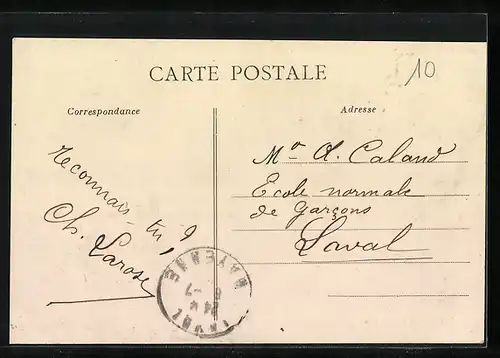 10
CARTE POSTALE
Correspondance
Adresse
reconnais-tu ?
Ch. Larose
Mr A. Caland
Ecole normale
de Garçons
Laval
LAVAL
MAYENNE